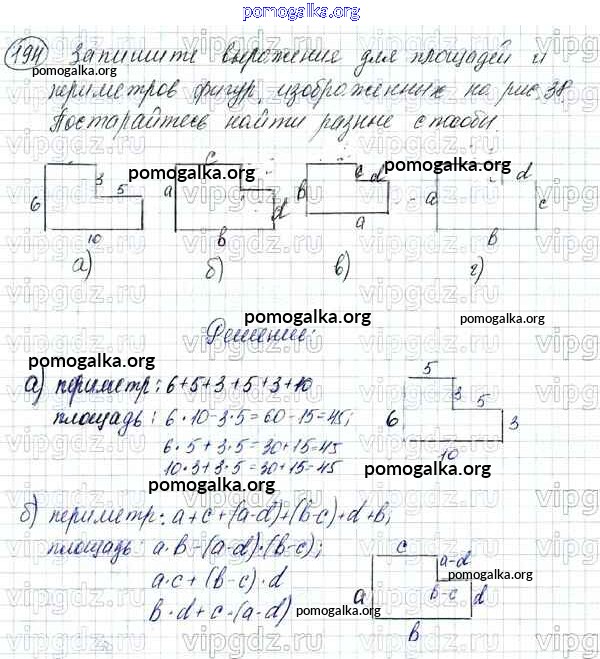 pomogalka.org
194 Запишите выражение для площадей и
pomogalka.org
периметров фигур, изображенных на рис. 38
Постарайтесь найти разные способы.
6 3 5 10 а)
a c d b б)
b c d a в)
a d c b г)
pomogalka.org
pomogalka.org
Решение:
pomogalka.org
а) периметр: 6+5+3+5+3+10
площадь: 6·10-3·5=60-15=45;
6·5+3·5=30+15=45
10·3+3·5=30+15=45
5 3 5 6 3 10
pomogalka.org
pomogalka.org
б) периметр: a+c+(a-d)+(b-c)+d+b;
площадь: a·b-(a-d)·(b-c);
a·c+(b-c)·d
b·d+c·(a-d)
c a-d b-c a d b
pomogalka.org
pomogalka.org
vipgdz.ru